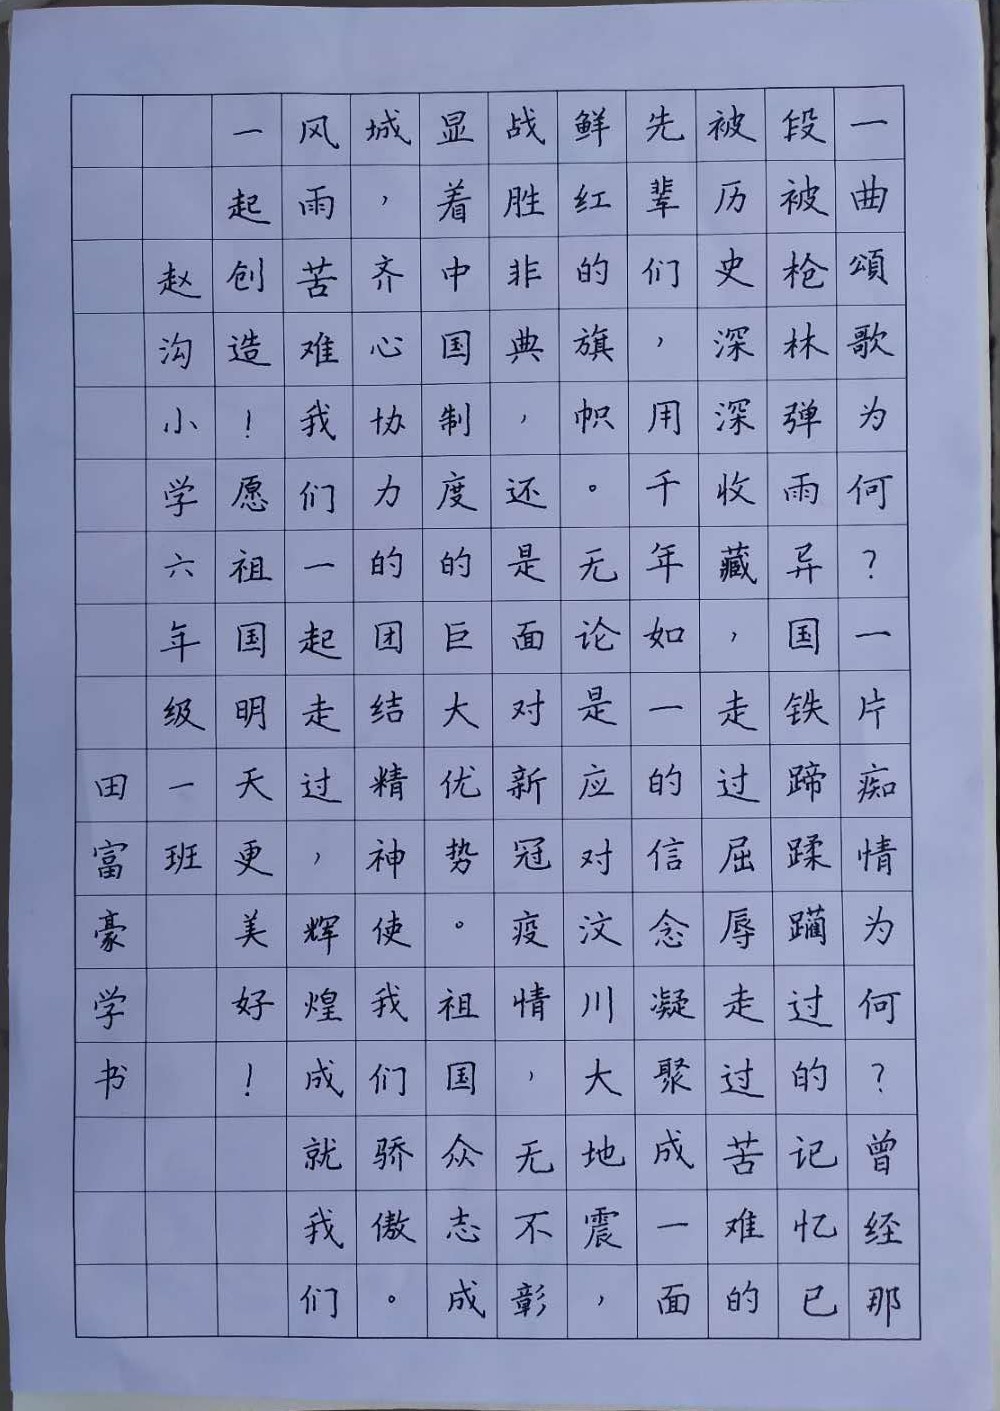 一曲頌歌为何？一片痴情为何？曾经那
段被枪林弹雨异国铁蹄蹂躏过的记忆已
被历史深深收藏，走过屈辱走过苦难的
先辈们，用千年如一的信念凝聚成一面
鲜红的旗帜。无论是应对汶川大地震，
战胜非典，还是面对新冠疫情，无不彰
显着中国制度的巨大优势。祖国众志成
城，齐心协力的团结精神使我们骄傲。
风雨苦难我们一起走过，辉煌成就我们
一起创造！愿祖国明天更美好！
赵沟小学六年级一班
田富豪学书